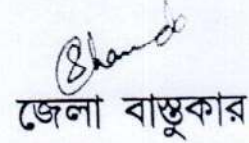 জেলা বাস্তুকার